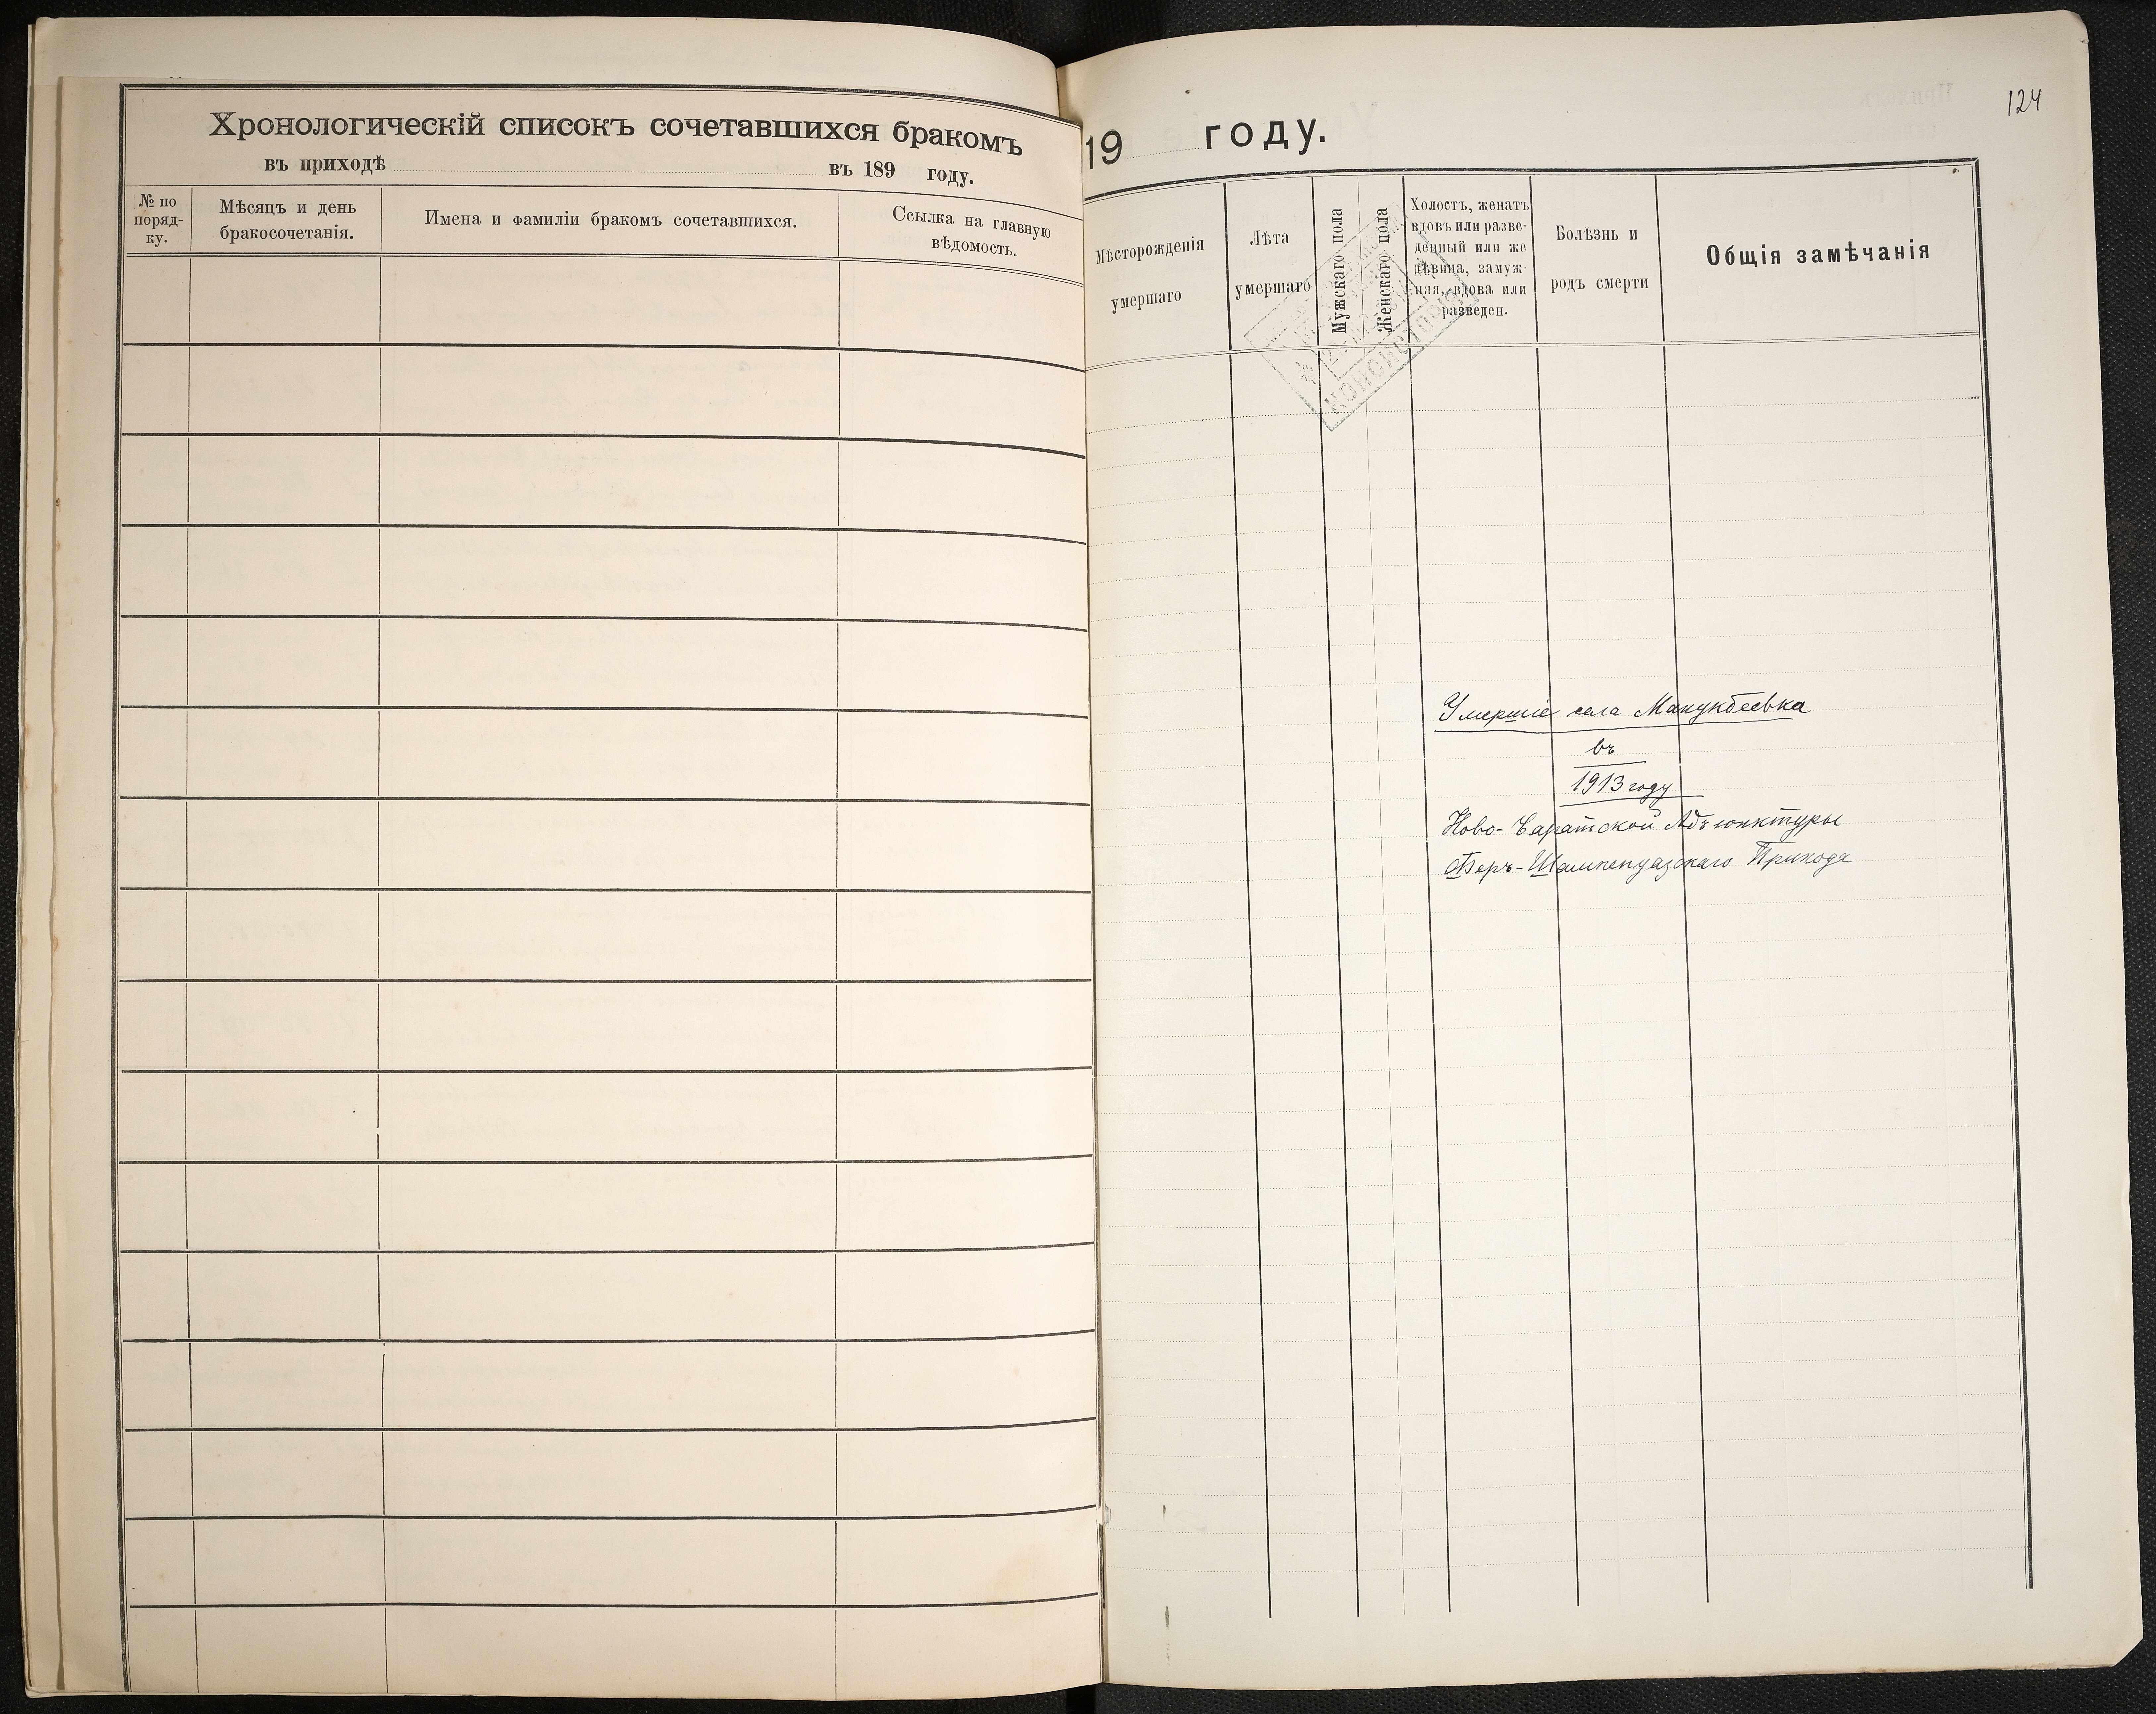 Хронологическій списокъ сочетавшихся бракомъ
въ приходѣ въ 189 году.
№ по поряд-ку.
Мѣсяцъ и день бракосочетанія.
Имена и фамиліи бракомъ сочетавшихся.
Ссылка на главную вѣдомость.
124
19 году.
Мѣсторожденія умершаго
Лѣта умершаго
Мужскаго пола
Женскаго пола
Холостъ, женатъ
вдовъ или разве-
денный или же
дѣвица, замуж-
няя, вдова или
разведен.
Болѣзнь и родъ смерти
Общія замѣчанія
Умершіе села Манукбеевка
въ
1913 году
Ново- Адъюнктуры
Прихода